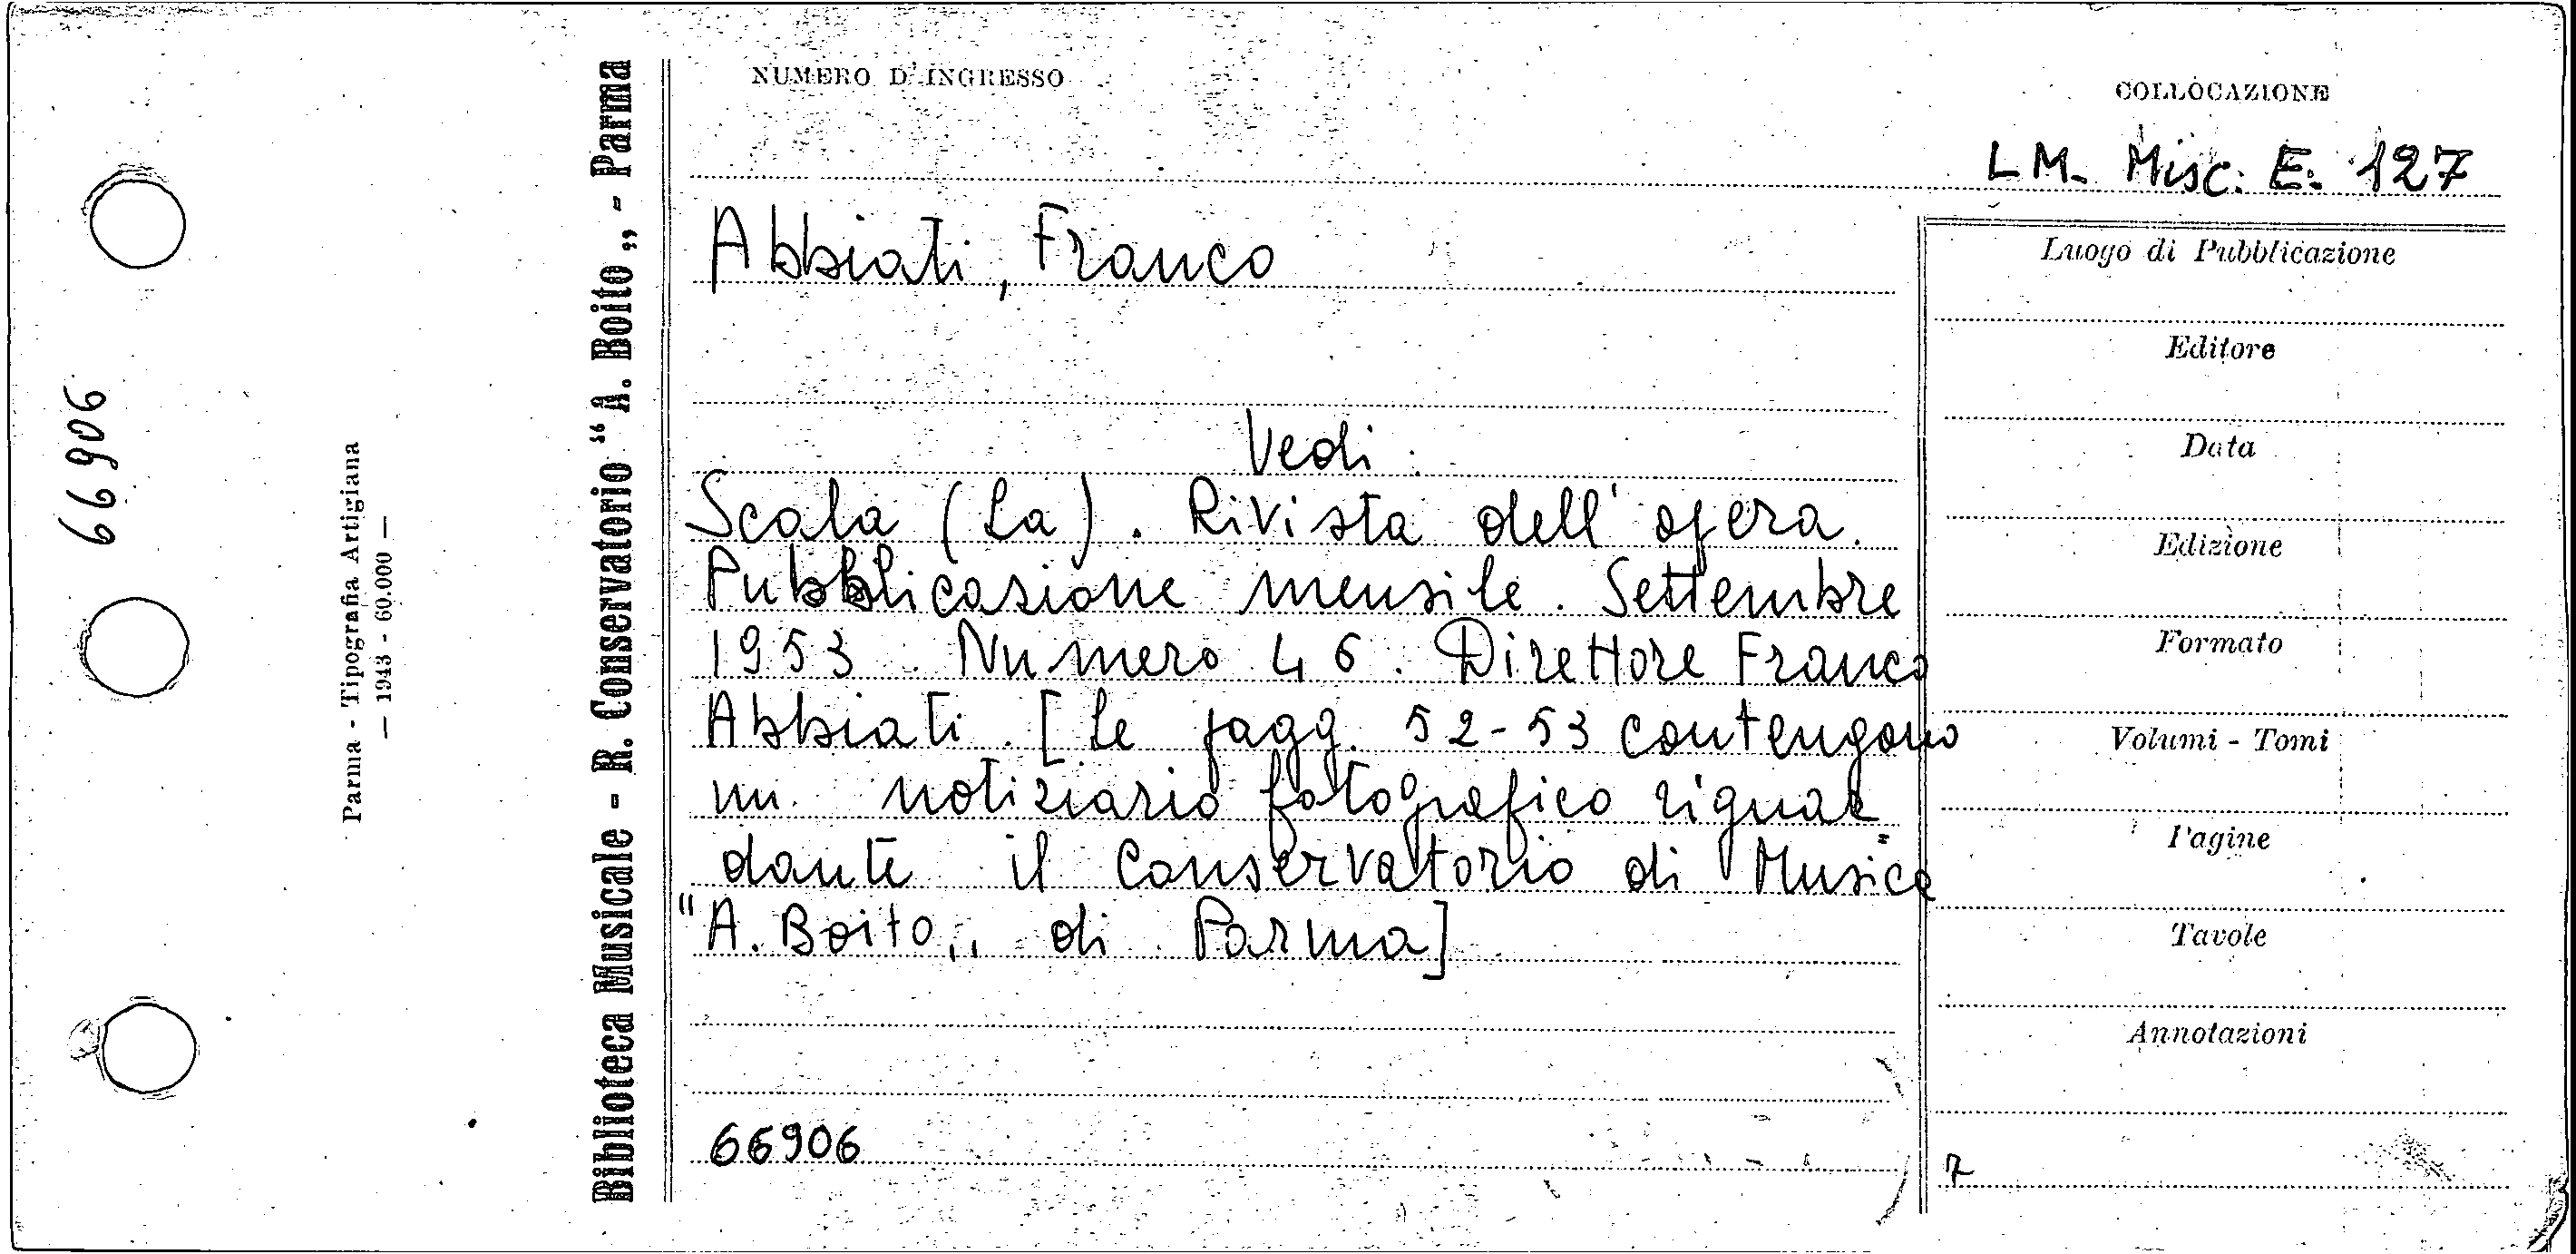 66906
Parma - Tipografia Artigiana
— 1943 - 60.000 —
Biblioteca Musicale - R. Conservatorio “A. Boito„ - Parma
NUMERO D'INGRESSO
COLLOCAZIONE
LM. Misc. E. 127
Abbiati, Franco
Vedi:
Scala (La). Rivista dell'opera.
Pubblicazione mensile. Settembre
1953. Numero 46. Direttore Franco
Abbiati. [Le pagg. 52-53 contengono
un notiziario fotografico riguar=
dante il Conservatorio di Musica
"A. Boito„ di Parma]
66906
Luogo di Pubblicazione
Editore
Data
Edizione
Formato
Volumi - Tomi
Pagine
Tavole
Annotazioni